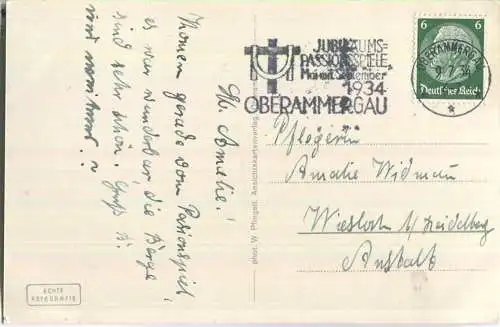 JUBILÄUMS-
PASSIONSSPIELE
Mai mit September
1934
OBERAMMERGAU
OBERAMMERGAU
9.7.34
6 6
Deutsches Reich
Lb. Amalie!
Kommen gerade vom Pasionspiel,
es war wunderbar, die Berge
sind sehr schön. Gruß
und
Pflegerin
Amalie Widmann
Wiesloch b/Heidelberg
Anstalt
phot. W. Pfingstl, Ansichtskartenverlag
ECHTE
FOTOGRAFIE